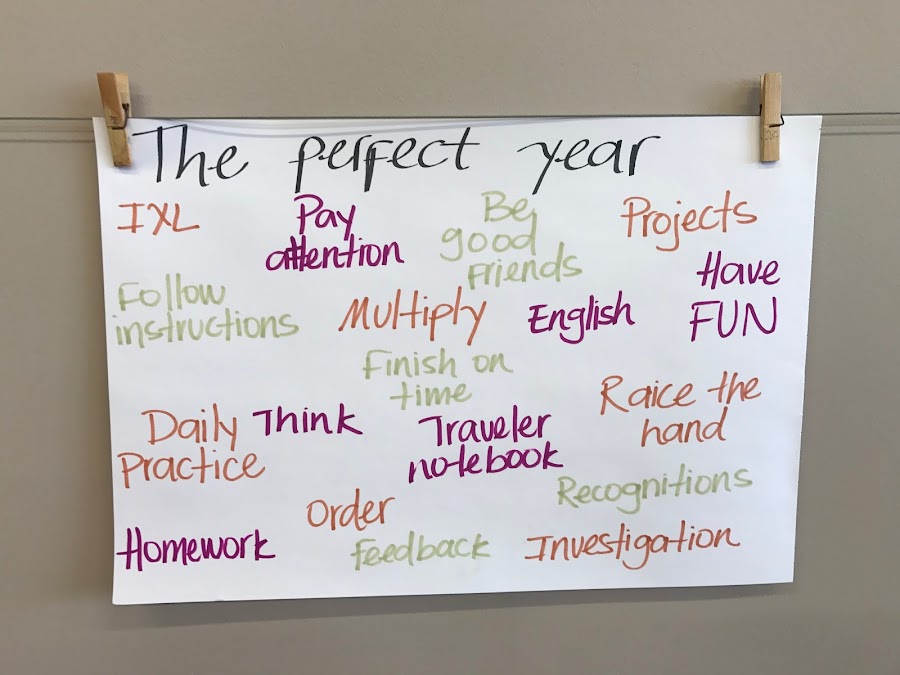 The perfect year
IXL
Pay
attention
Be
good
friends
Projects
Have
FUN
Follow
instructions
Multiply
English
Finish on
time
Raice the
hand
Daily
Practice
Think
Traveler
notebook
Recognitions
Order
Homework
Feedback
Investigation